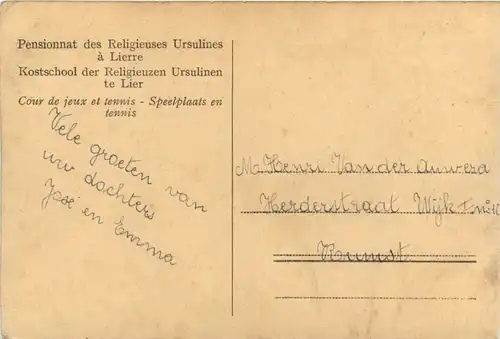 Pensionnat des Religieuses Ursulines
à Lierre
Kostschool der Religieuzen Ursulinen
te Lier
Cour de jeux et tennis - Speelplaats en
tennis
Vele groeten van
uw dochters
José en Emma
M Henri Van der Auwera
Herderstraat Wijk F
Rumst